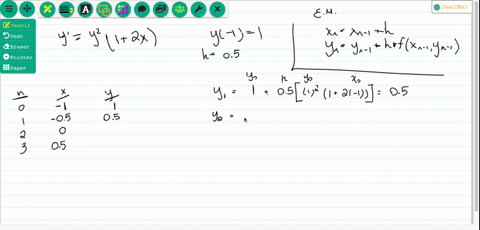 Pencil
Undo
Eraser
Pointer
Paper
y' = y²(1+2x)
y(-1)=1
h=0.5
E.M.
xₙ = xₙ₋₁ + h
yₙ = yₙ₋₁ + h*f(xₙ₋₁, yₙ₋₁)
n x y
0 -1 1
1 -0.5 0.5
2 0
3 0.5
y₀ h y₀ x₀
y₁ = 1 + 0.5[(1)²(1+2(-1))] = 0.5
y₂ =